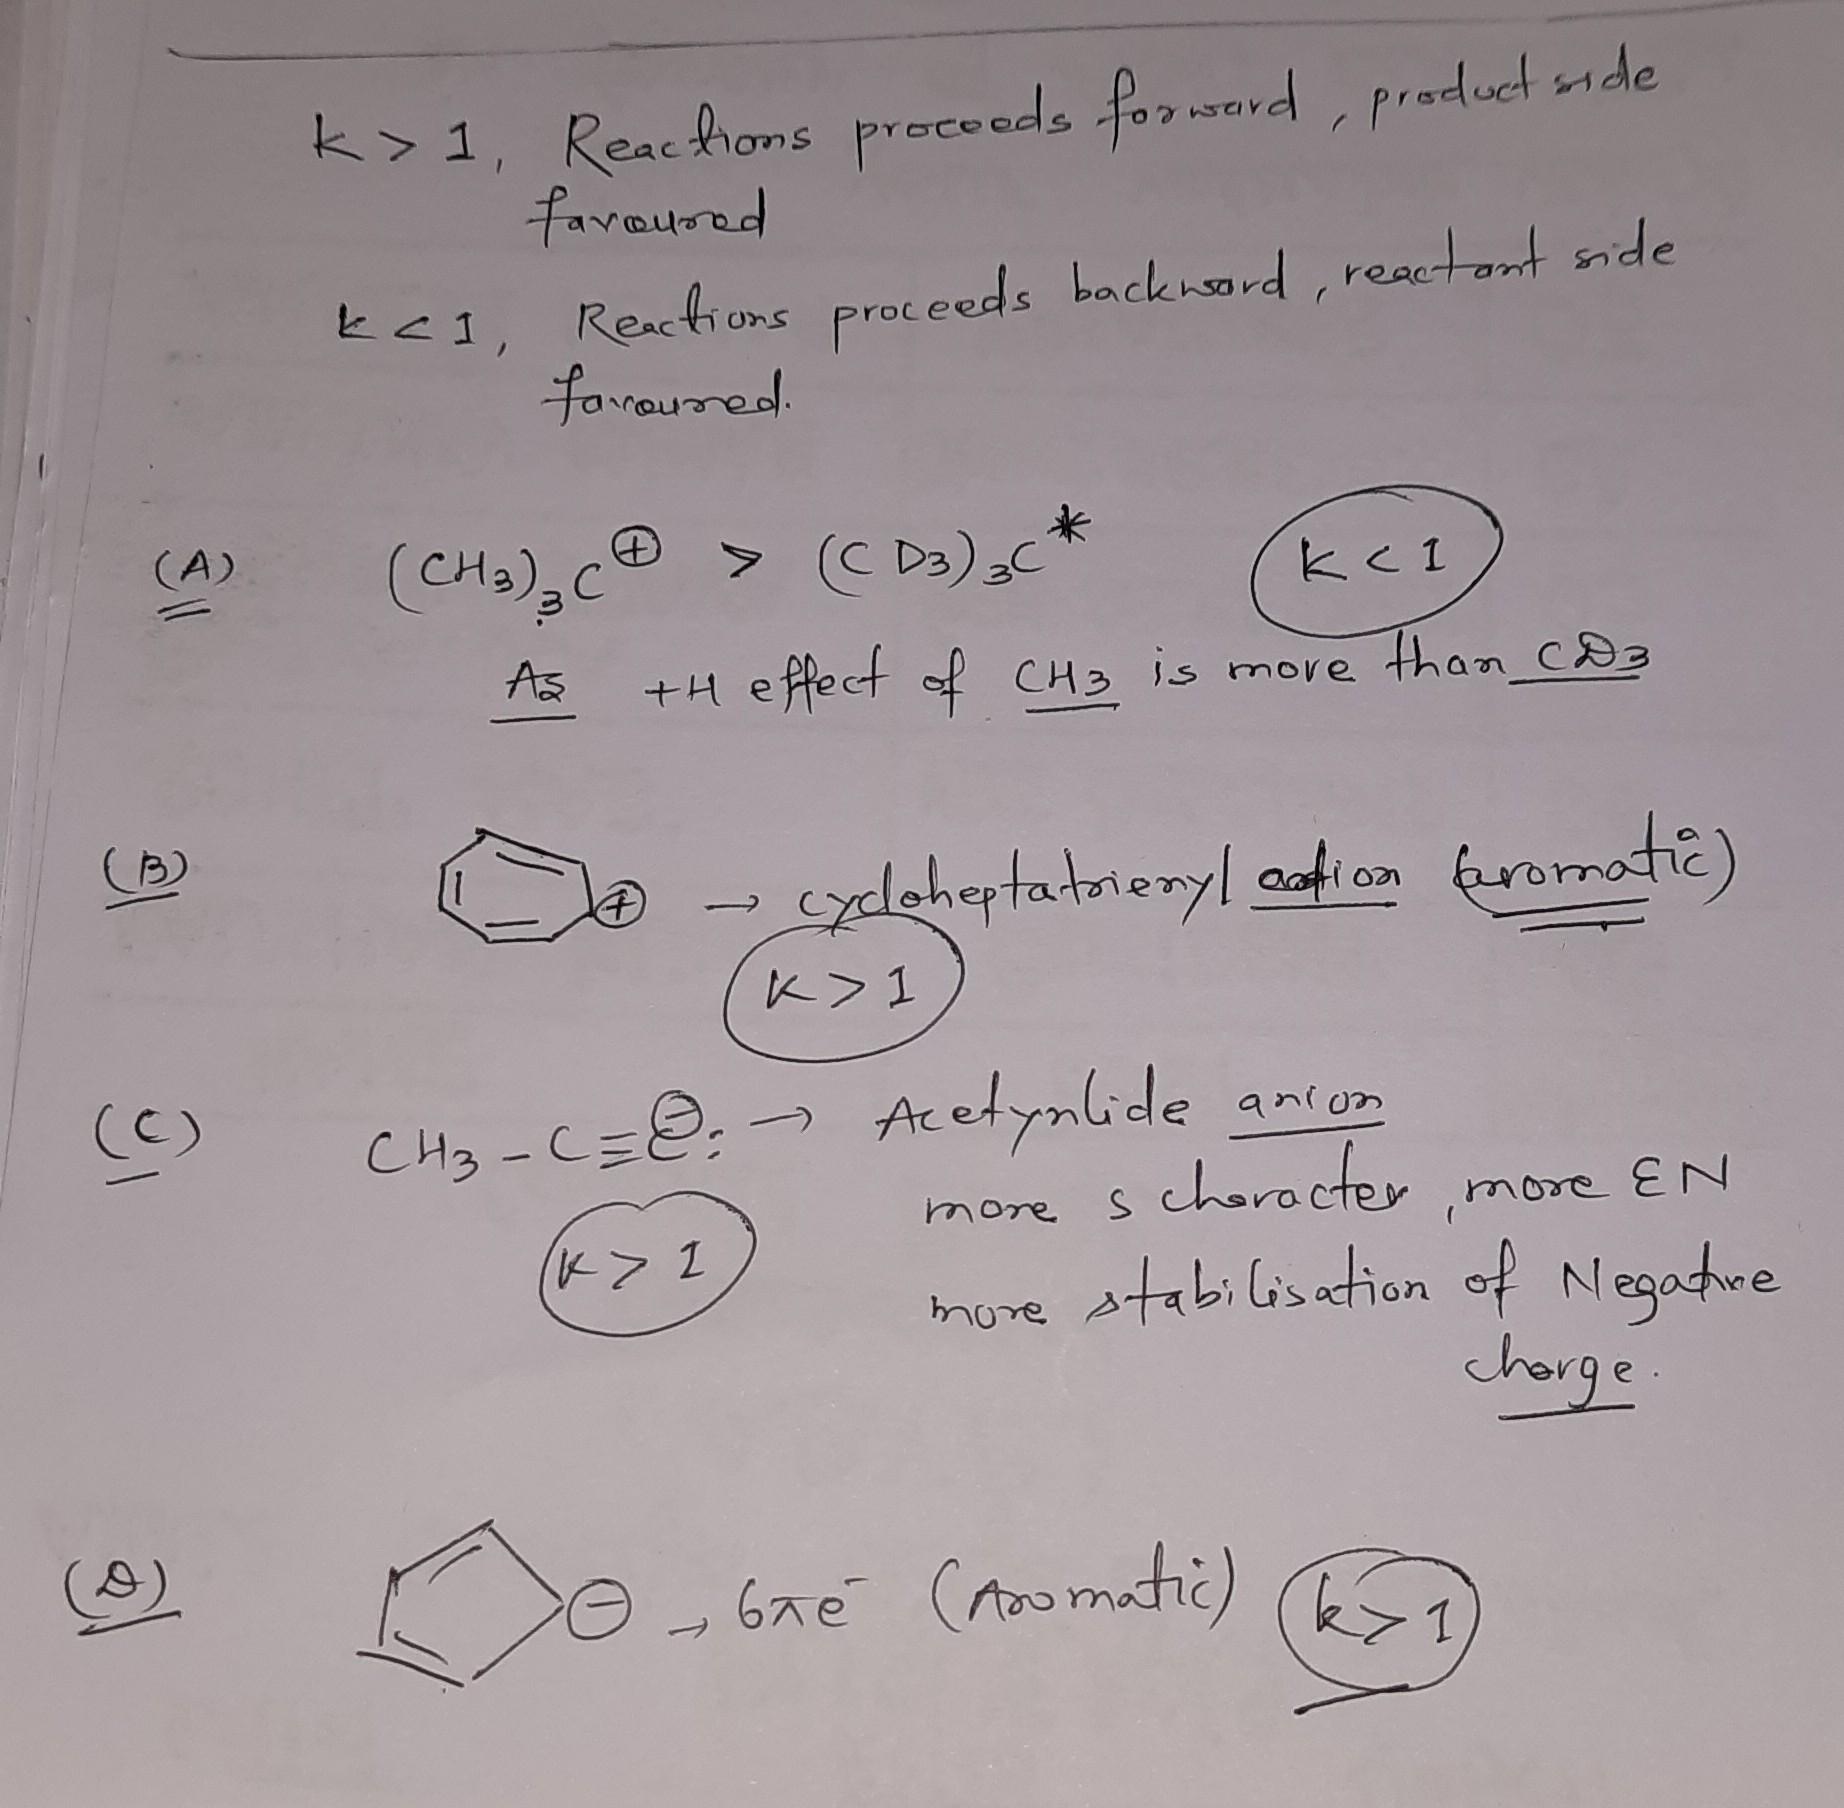 k > 1, Reactions proceeds forward, product side
favoured
k < 1, Reactions proceeds backward, reactant side
favoured.
(A) (CH3)3C⊕ > (CD3)3C* K < 1
As +H effect of CH3 is more than CD3
(B) ⊕ → cycloheptatrienyl cation (aromatic)
K > 1
(C) CH3-C≡C⊖: → Acetynlide anion
more s character, more EN
K > 1
more stabilisation of Negative
charge.
(D) ⊖ → 6πe⁻ (Aromatic) k > 1